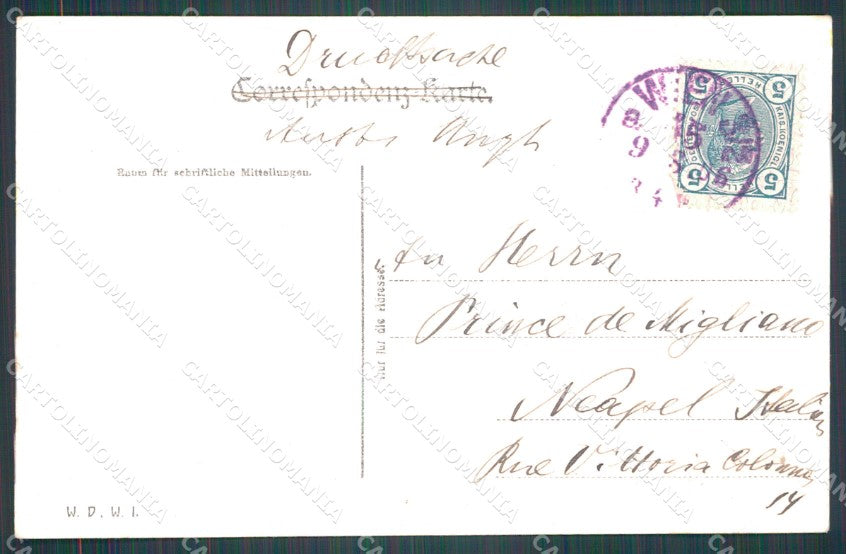 Drucksache
Correspondenz-Karte.
Raum für schriftliche Mitteilungen.
WIEN
9
5
HELLER
KAIS. KOENIGL.
5
5
5
Nur für die Adresse.
An Herrn
Prince de Migliano
Neapel Italien
Rue Vittoria Colonna
14
W. D. W. I.
CARTOLINOMANIA